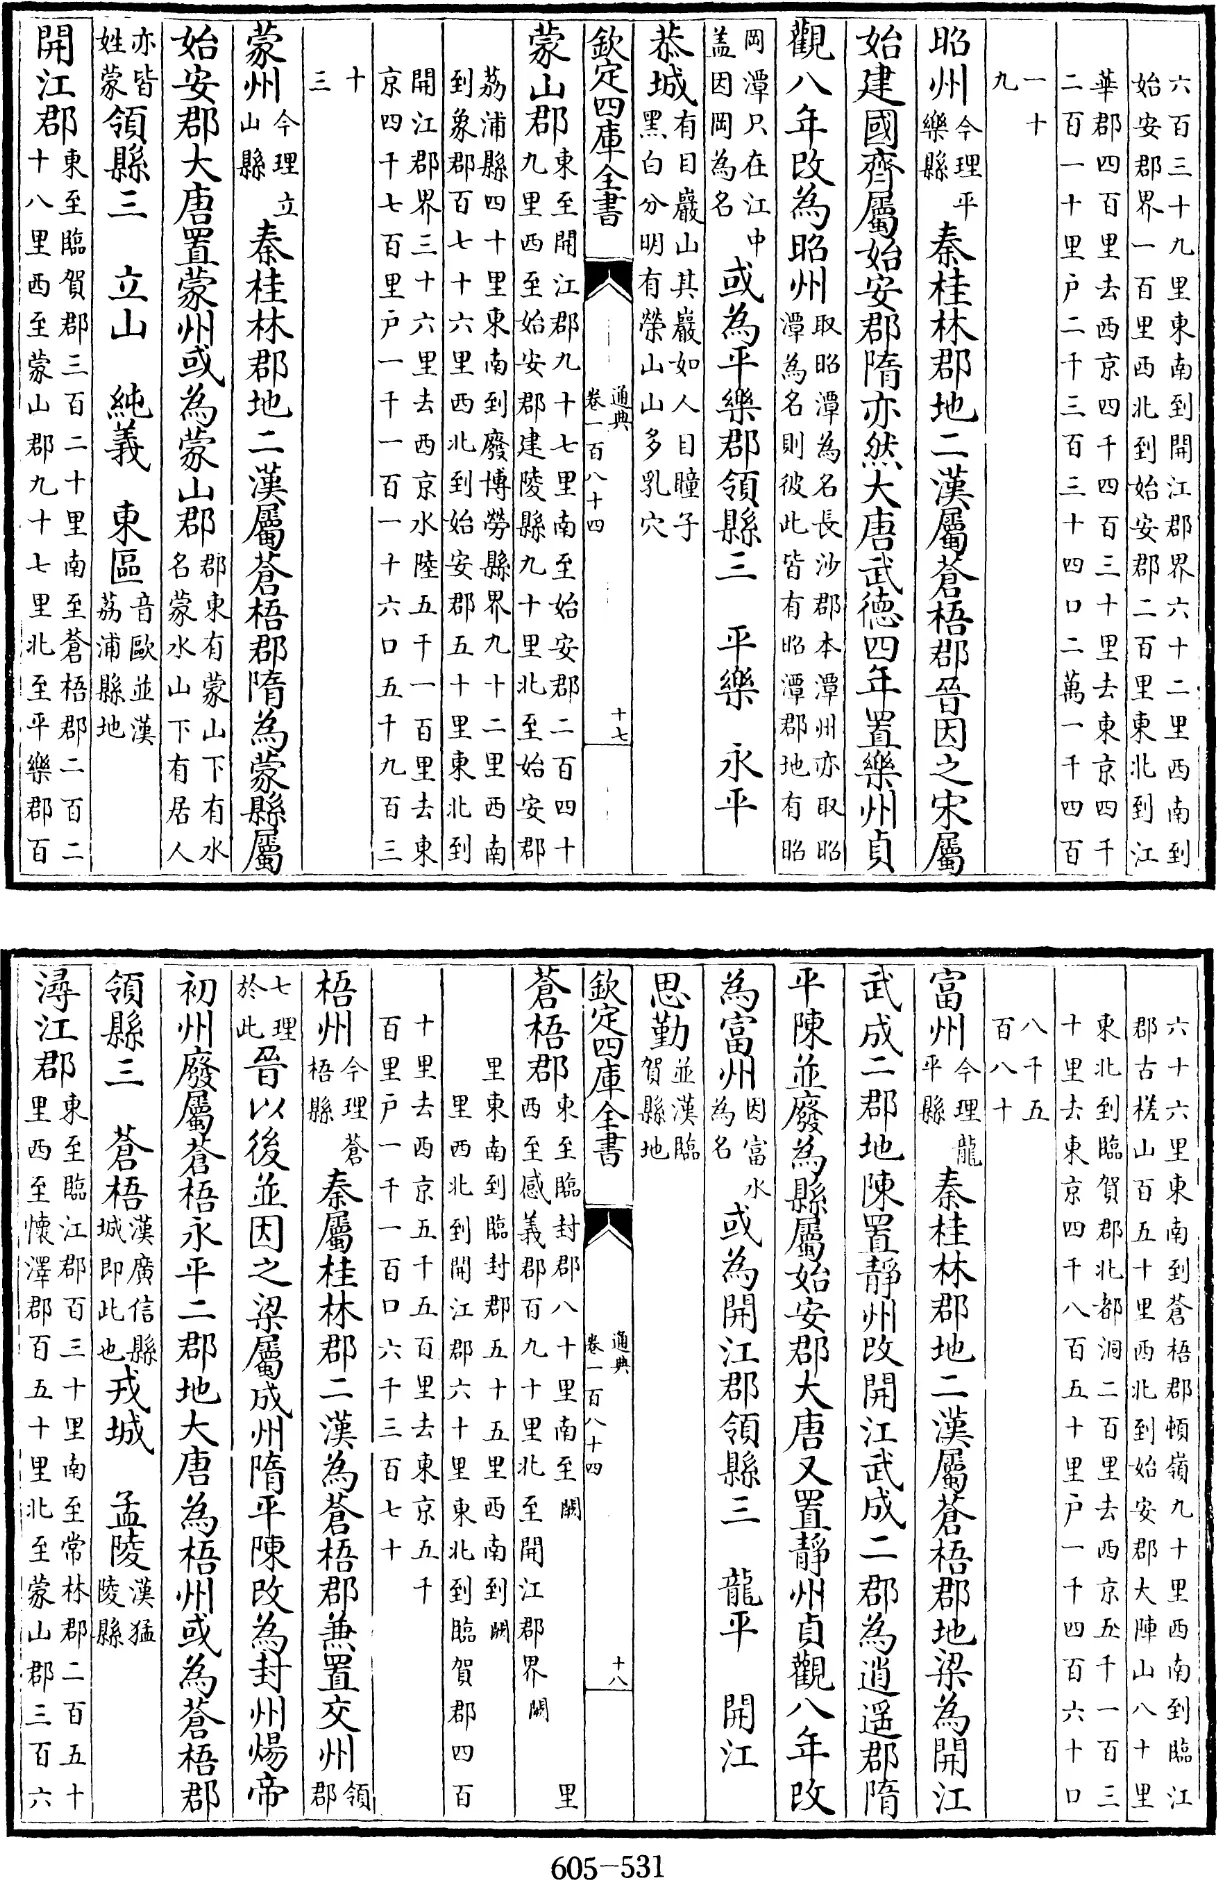 六百三十九里東南到開江郡界六十二里西南到
始安郡界一百里西北到始安郡二百里東北到江
華郡四百里去西京四千四百三十里去東京四千
二百一十里户二千三百三十四口二萬一千四百
一十
九
昭州今理平樂縣秦桂林郡地二漢屬蒼梧郡晉因之宋屬
始建國齊屬始安郡隋亦然大唐武德四年置樂州貞
觀八年改為昭州取昭潭為名長沙郡本潭州亦取昭潭為名則彼此皆有昭潭郡地有昭
岡潭只在江中盖因岡為名或為平樂郡領縣三 平樂 永平
恭城有目巖山其巖如人目瞳子黑白分明有榮山山多乳穴
欽定四庫全書 通典 卷一百八十四 十七
蒙山郡東至開江郡九十七里南至始安郡二百四十九里西至始安郡建陵縣九十里北至始安郡
荔浦縣四十里東南到廢博勞縣界九十二里西南
到象郡百七十六里西北到始安郡五十里東北到
開江郡界三十六里去西京水陸五千一百里去東
京四千七百里户一千一百一十六口五千九百三
十
三
蒙州今理立山縣秦桂林郡地二漢屬蒼梧郡隋為蒙縣屬
始安郡大唐置蒙州或為蒙山郡郡東有蒙山下有水名蒙水山下有居人
亦皆姓蒙領縣三 立山 純義 東區音歐並漢荔浦縣地
開江郡東至臨賀郡三百二十里南至蒼梧郡二百二十八里西至蒙山郡九十七里北至平樂郡百
六十六里東南到蒼梧郡頓嶺九十里西南到臨江
郡古槎山百五十里西北到始安郡大陣山八十里
東北到臨賀郡北都洞二百里去西京五千一百三
十里去東京四千八百五十里户一千四百六十口
八千五
百八十
富州今理龍平縣秦桂林郡地二漢屬蒼梧郡地梁為開江
武成二郡地陳置靜州改開江武成二郡為逍遥郡隋
平陳並廢為縣屬始安郡大唐又置靜州貞觀八年改
為富州因富水為名或為開江郡領縣三 龍平 開江
思勤並漢臨賀縣地
欽定四庫全書 通典 卷一百八十四 十八
蒼梧郡東至臨封郡八十里南至闕里西至感義郡百九十里北至開江郡界闕
里東南到臨封郡五十五里西南到闕
里西北到開江郡六十里東北到臨賀郡四百
十里去西京五千五百里去東京五千
百里户一千一百口六千三百七十
梧州今理蒼梧縣秦屬桂林郡二漢為蒼梧郡兼置交州領郡
七理於此晉以後並因之梁屬成州隋平陳改為封州煬帝
初州廢屬蒼梧永平二郡地大唐為梧州或為蒼梧郡
領縣三 蒼梧漢廣信縣城即此也戎城 孟陵漢猛陵縣
潯江郡東至臨江郡百三十里南至常林郡二百五十里西至懷澤郡百五十里北至蒙山郡三百六
605-531